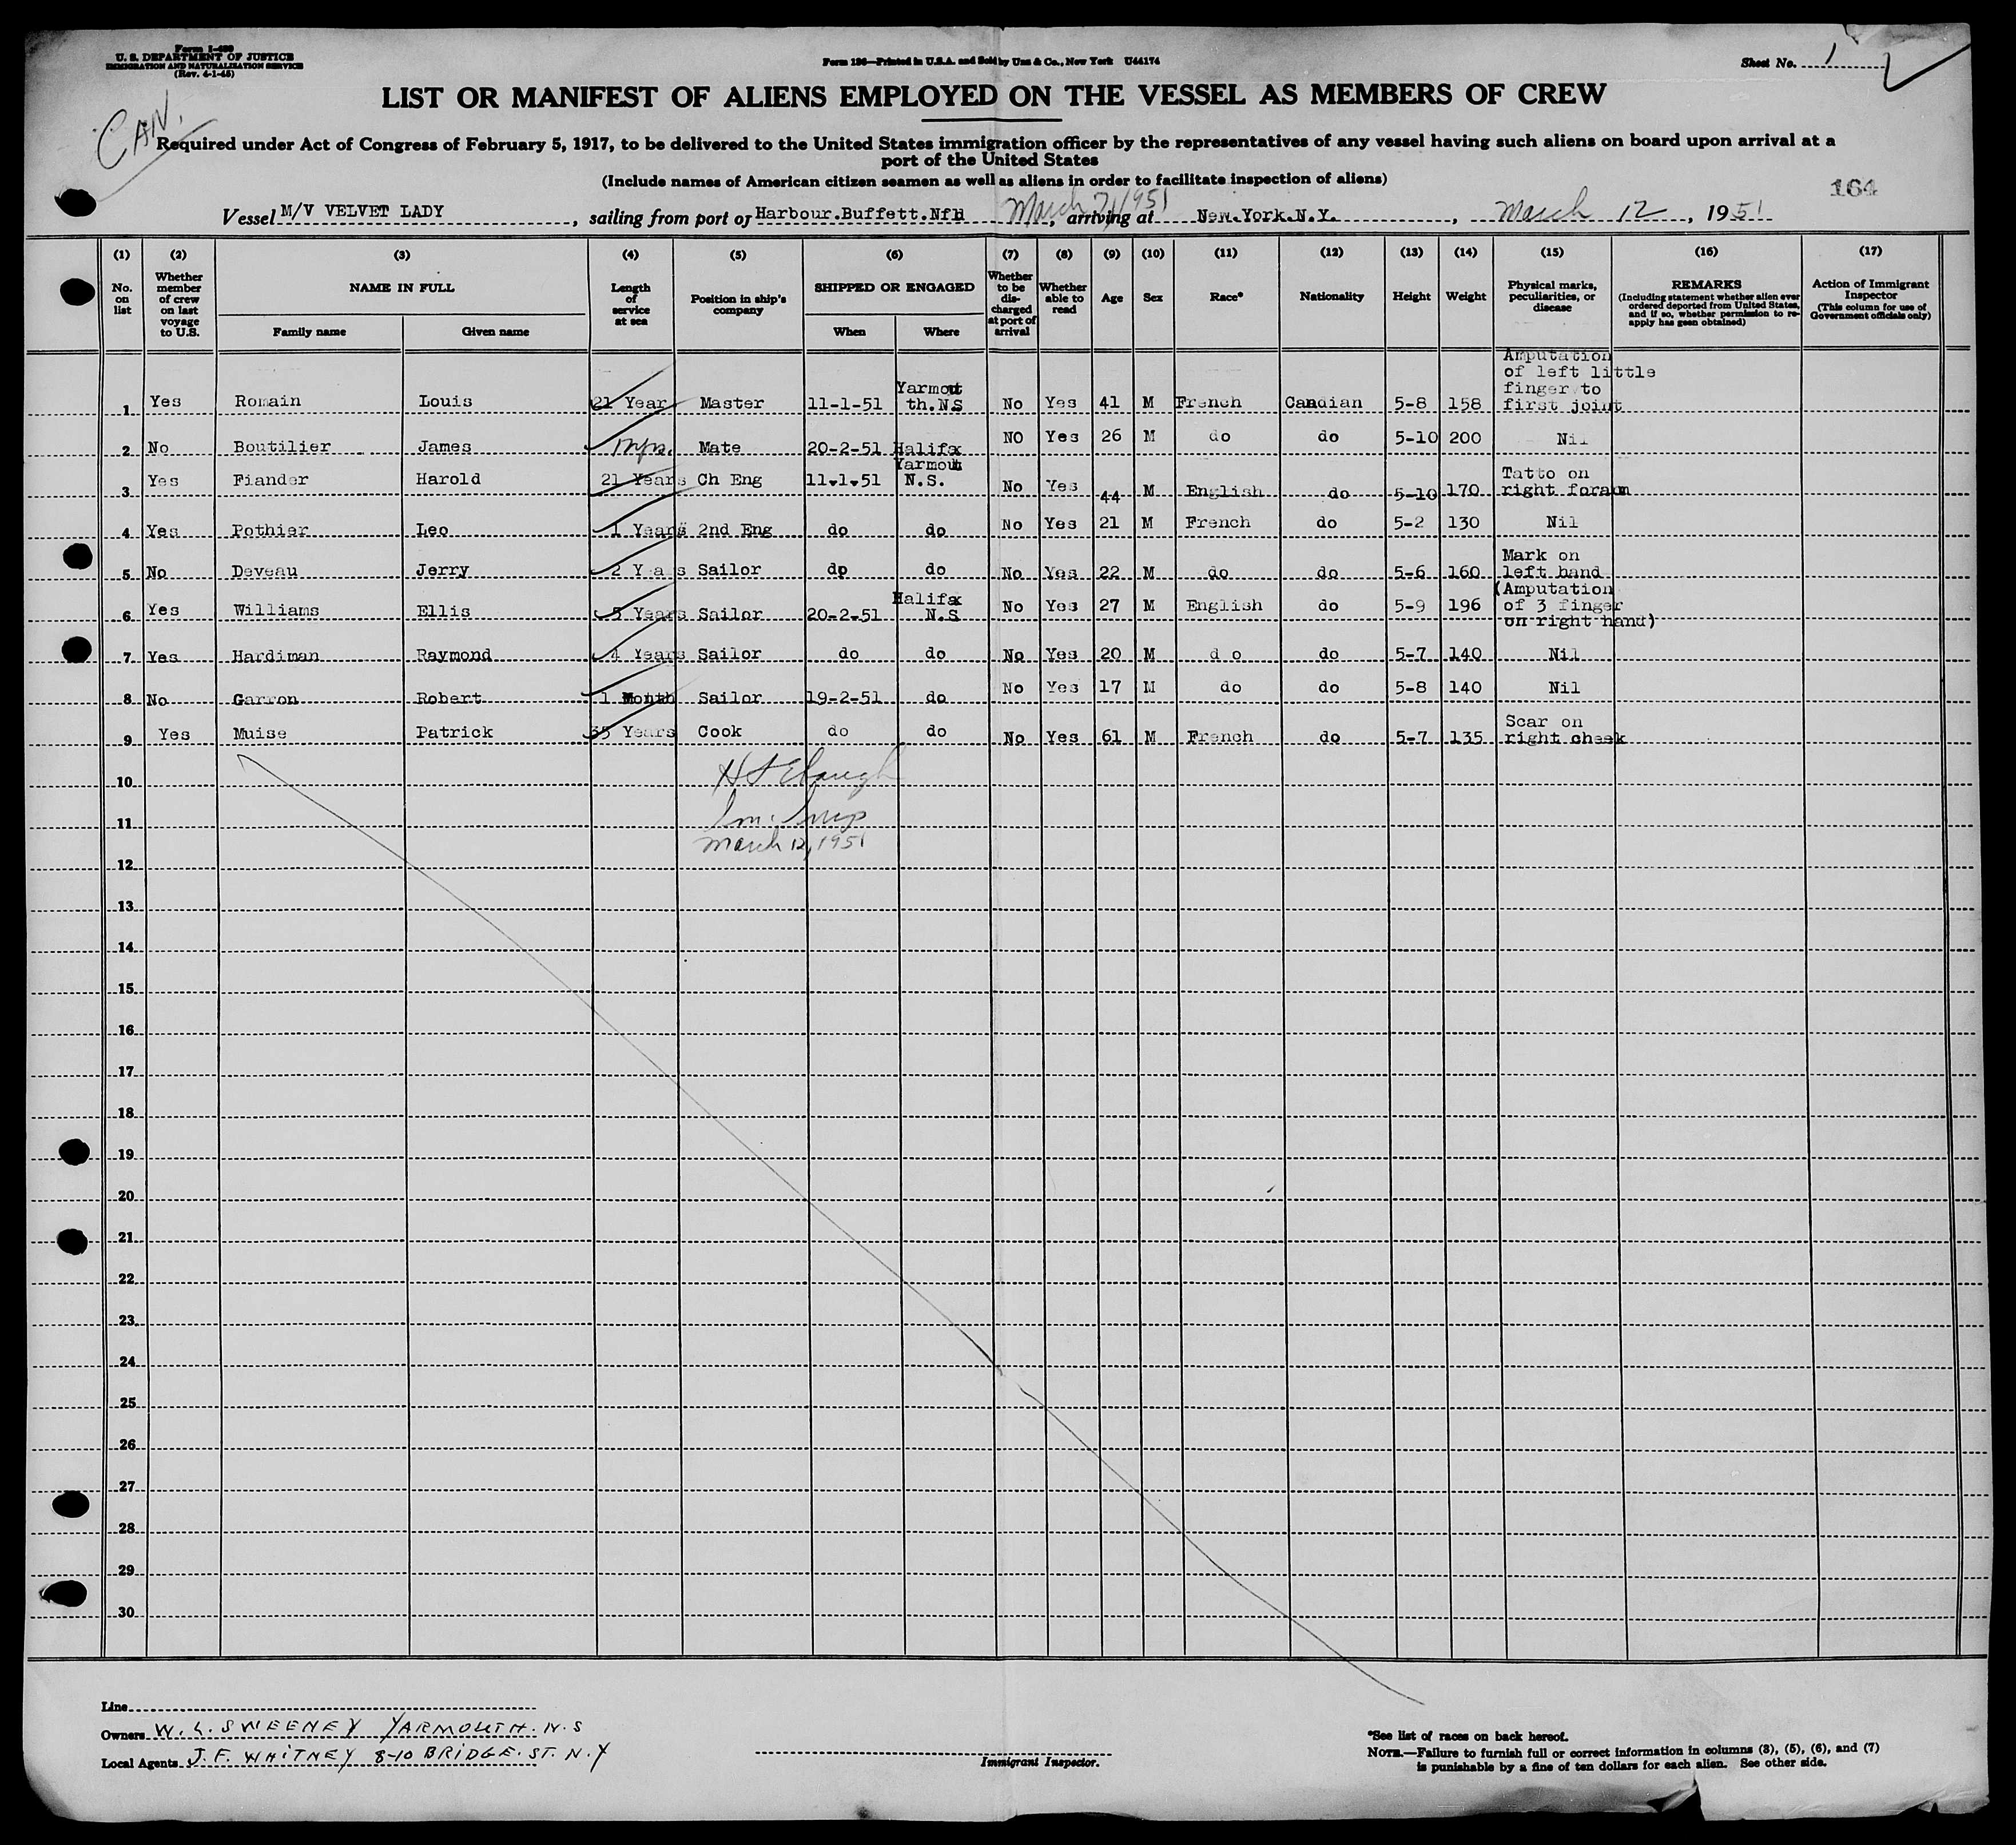 Form I-480
U. S. DEPARTMENT OF JUSTICE
IMMIGRATION AND NATURALIZATION SERVICE
(Rev. 4-1-45)
Form 186—Printed in U.S.A. and Sold by Unz & Co., New York U44174
Sheet No. 1
CAN.
LIST OR MANIFEST OF ALIENS EMPLOYED ON THE VESSEL AS MEMBERS OF CREW
Required under Act of Congress of February 5, 1917, to be delivered to the United States immigration officer by the representatives of any vessel having such aliens on board upon arrival at a
port of the United States
(Include names of American citizen seamen as well as aliens in order to facilitate inspection of aliens)
164
Vessel M/V VELVET LADY, sailing from port of Harbour.Buffett.Nfld March 7, 1951, arriving at New.York.N.Y., March 12, 1951
(1) (2) (3) (4) (5) (6) (7) (8) (9) (10) (11) (12) (13) (14) (15) (16) (17)
No. on list Whether member of crew on last voyage to U.S. NAME IN FULL Family name Given name Length of service at sea Position in ship's company SHIPPED OR ENGAGED When Where Whether to be discharged at port of arrival Whether able to read Age Sex Race* Nationality Height Weight Physical marks, peculiarities, or disease REMARKS (Including statement whether alien ever ordered deported from United States, and if so, whether permission to re-apply has geen obtained) Action of Immigrant Inspector (This column for use of Government officials only)
1 Yes Romain Louis 21 Year Master 11-1-51 Yarmout th.N.S No Yes 41 M French Canadian 5-8 158 Amputation of left little finger to first joint
2 No Boutilier James Mate 20-2-51 Halifax NO Yes 26 M do do 5-10 200 Nil
3 Yes Fiander Harold 21 Years Ch Eng 11.1.51 Yarmouth N.S. No Yes 44 M English do 5-10 170 Tatto on right foram
4 Yes Pothier Leo 1 Years 2nd Eng do do No Yes 21 M French do 5-2 130 Nil
5 No Deveau Jerry 2 Yeas Sailor dp do No Yes 22 M do do 5-6 160 Mark on left hand
6 Yes Williams Ellis 5 Years Sailor 20-2-51 Halifax N.S No Yes 27 M English do 5-9 196 (Amputation of 3 finger on right hand)
7 Yes Hardiman Raymond 4 Years Sailor do do No Yes 20 M d o do 5-7 140 Nil
8 No Garron Robert 1 Month Sailor 19-2-51 do No Yes 17 M do do 5-8 140 Nil
9 Yes Muise Patrick 35 Years Cook do do No Yes 61 M French do 5-7 135 Scar on right cheek
10
11 Im. Insp
March 12, 1951
12
13
14
15
16
17
18
19
20
21
22
23
24
25
26
27
28
29
30
Line
Owners W. L. SWEENEY YARMOUTH. N.S
Local Agents J. F. WHITNEY 8-10 BRIDGE. ST. N.Y
Immigrant Inspector.
*See list of races on back hereof.
NOTE.—Failure to furnish full or correct information in columns (3), (5), (6), and (7)
is punishable by a fine of ten dollars for each alien. See other side.